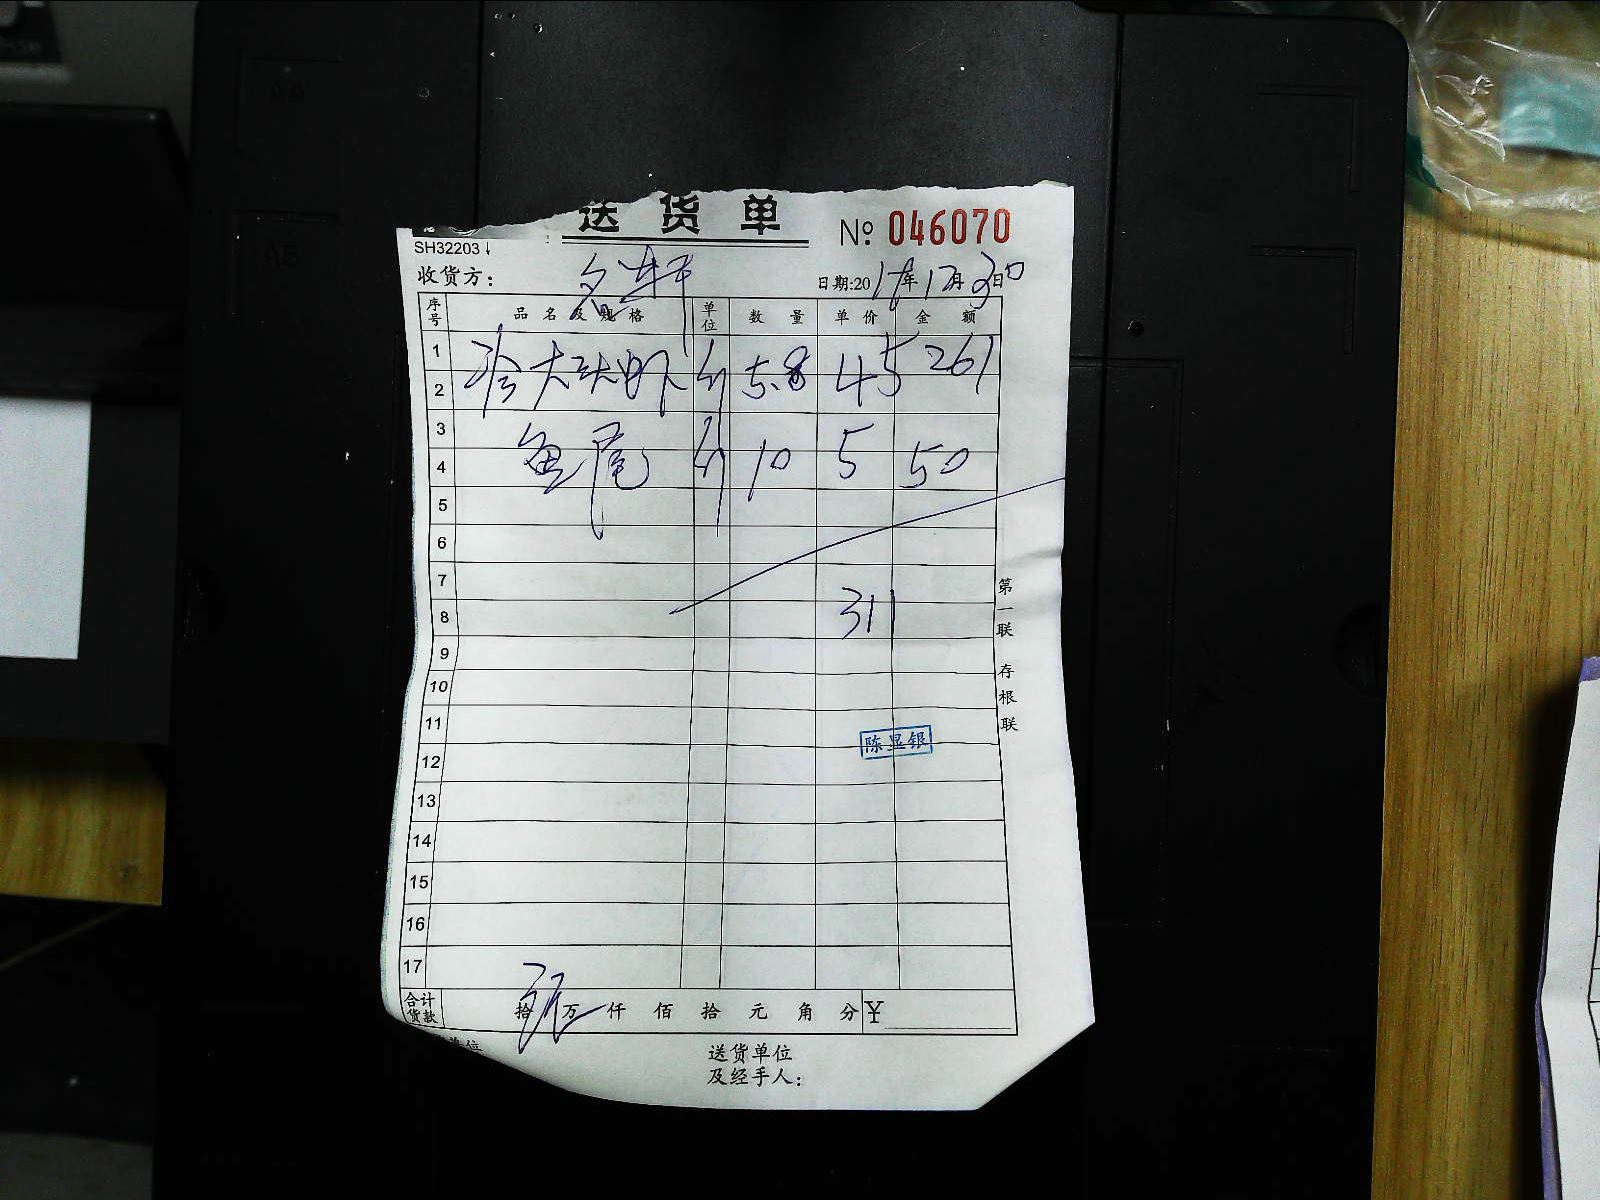 送货单 № 046070
SH32203
收货方: 名轩 日期:2017年12月30日
序号 品名及规格 单位 数量 单价 金额
1
2 冷大头虾 斤 5.8 45 261
3
4 鱼尾 斤 10 5 50
5
6
7
8 311
9
10
11
陈显银
12
13
14
15
16
17
合计货款 拾 万 仟 佰 拾 元 角 分 ¥
单位 送货单位
及经手人:
第一联 存根联